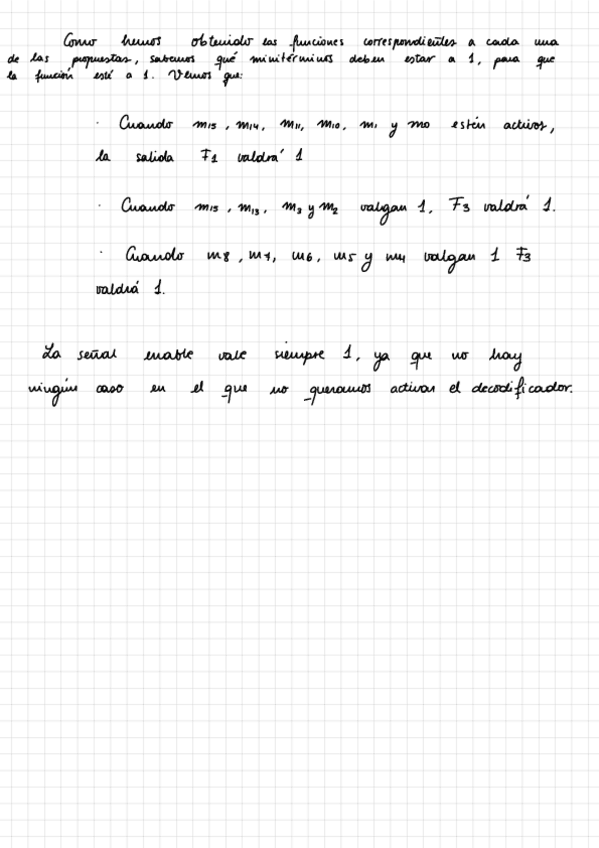 Como hemos obtenido las funciones correspondientes a cada una
de las propuestas, sabemos qué minitérminos deben estar a 1, para que
la función esté a 1. Vemos que:
· Cuando m15, m14, m11, m10, m1 y m0 estén activos,
la salida F1 valdrá 1
· Cuando m15, m13, m3 y m2 valgan 1, F3 valdrá 1.
· Cuando m8, m7, m6, m5 y m4 valgan 1 F3
valdrá 1.
La señal enable vale siempre 1, ya que no hay
ningún caso en el que no queramos activar el decodificador.